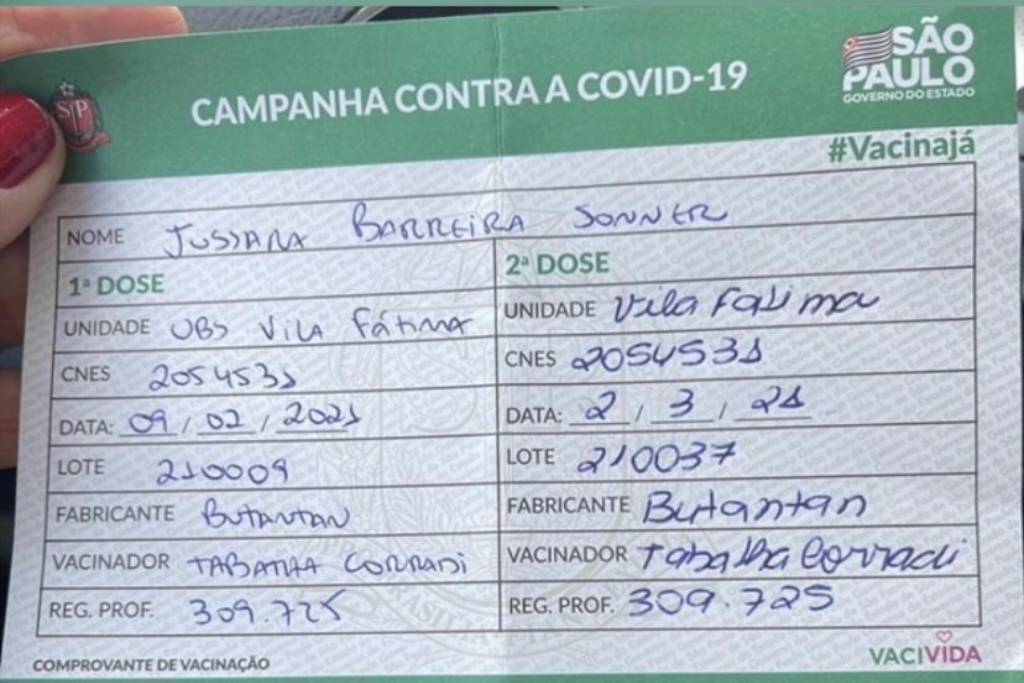 SÃO
PAULO
GOVERNO DO ESTADO
SP
CAMPANHA CONTRA A COVID-19
#Vacinajá
NOME JUSSARA BARREIRA SONNER
1ª DOSE
UNIDADE UBS VILA FÁTIMA
CNES 2054531
DATA: 09/02/2021
LOTE 210009
FABRICANTE BUTANTAN
VACINADOR TABATHA CORRADI
REG. PROF. 309.725
2ª DOSE
UNIDADE Vila Fatima
CNES 2054531
DATA: 2/3/21
LOTE 210037
FABRICANTE Butantan
VACINADOR Tabatha Corradi
REG. PROF. 309.725
COMPROVANTE DE VACINAÇÃO
VACIVIDA